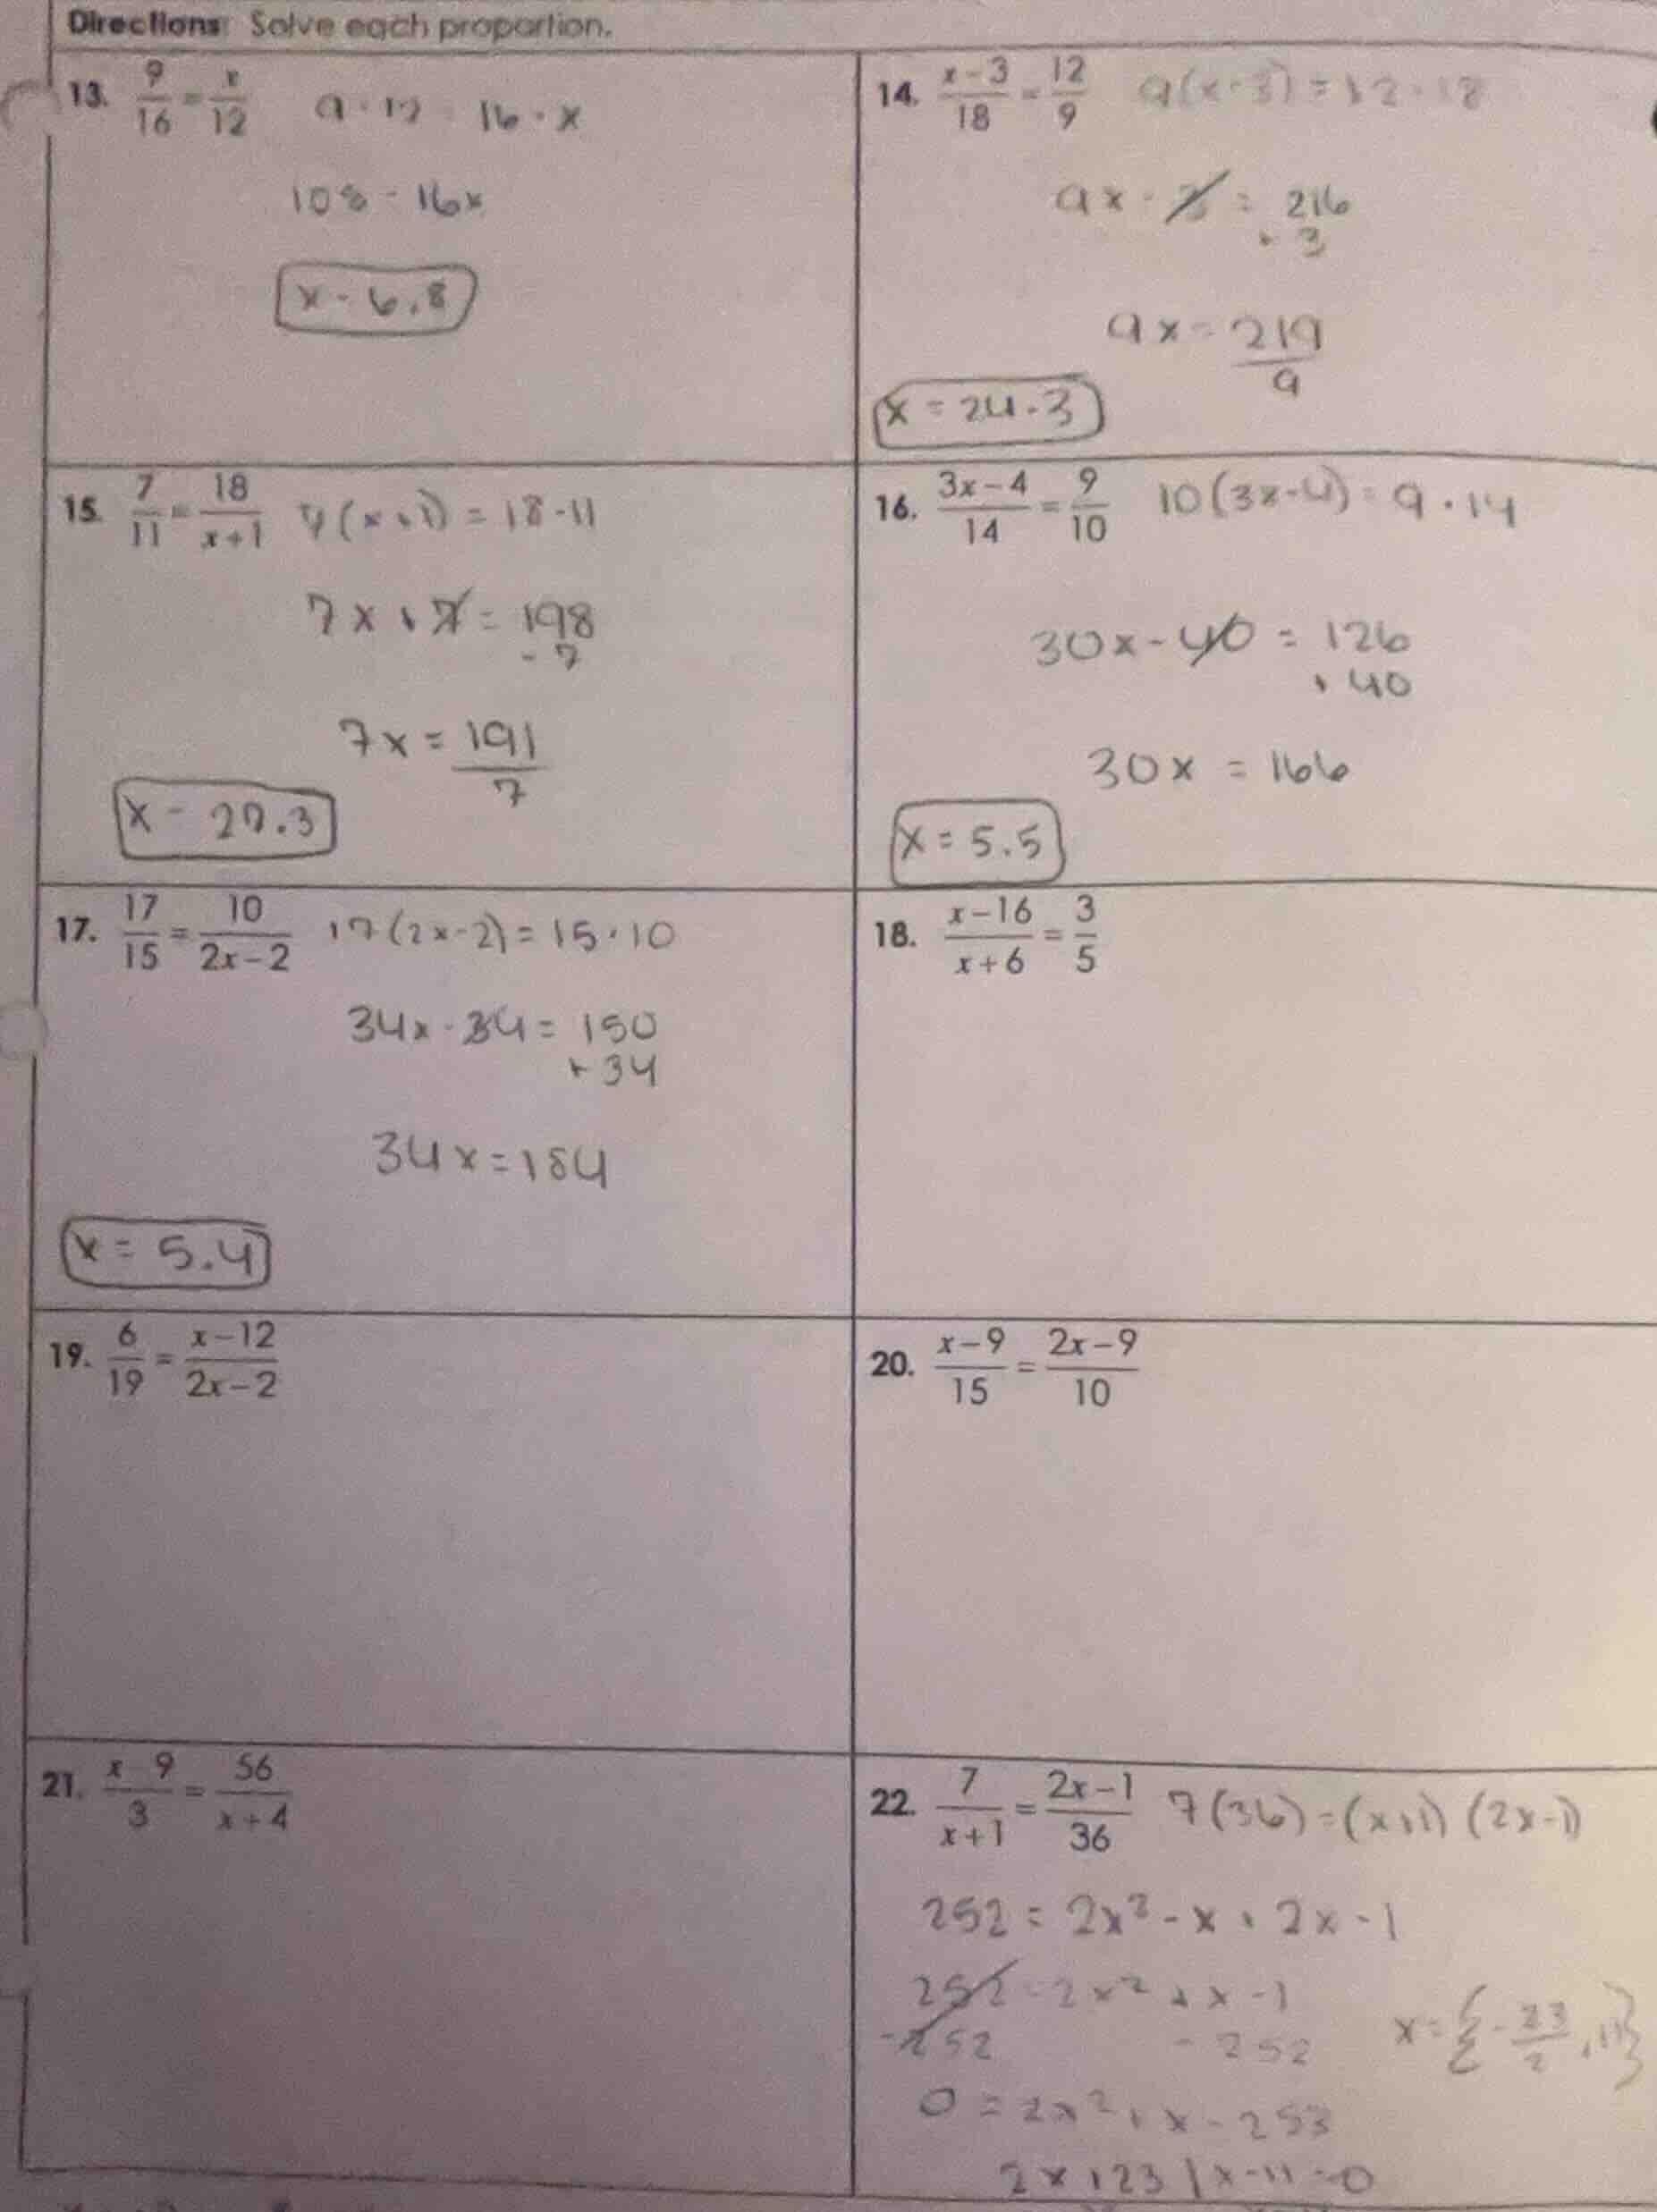 Directions: Solve each proportion.
13. 9/16 = x/12 9 · 12 = 16 · x
108 = 16x
x = 6.8
14. (x-3)/18 = 12/9 9(x-3) = 12 · 18
9x - 3 = 216
+ 3
9x = 219/9
x = 24.3
15. 7/11 = 18/(x+1) 7(x+1) = 18·11
7x + 7 = 198
- 7
7x = 191/7
x = 27.3
16. (3x-4)/14 = 9/10 10(3x-4) = 9 · 14
30x - 40 = 126
+ 40
30x = 166
x = 5.5
17. 17/15 = 10/(2x-2) 17(2x-2) = 15·10
34x - 34 = 150
+ 34
34x = 184
x = 5.4
18. (x-16)/(x+6) = 3/5
19. 6/19 = (x-12)/(2x-2)
20. (x-9)/15 = (2x-9)/10
21. (x-9)/3 = 56/(x+4)
22. 7/(x+1) = (2x-1)/36 7(36) = (x+1)(2x-1)
252 = 2x² - x + 2x - 1
252 = 2x² + x - 1
-252 - 252
x = {-23/2, 11}
0 = 2x² + x - 253
2x+23 | x-11 = 0